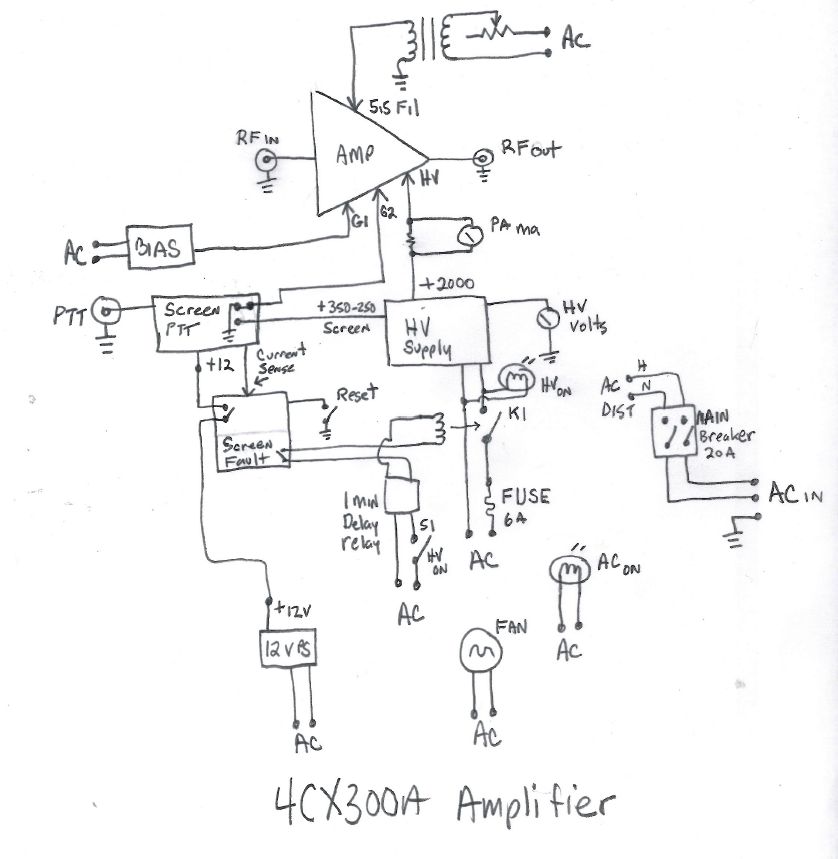 AC
5.5 Fil
RF IN
AMP
RF Out
HV
G1
G2
PA ma
AC
BIAS
+2000
PTT
Screen
PTT
+350-250
Screen
HV
Supply
HV
Volts
+12
Current
Sense
HV ON
H
AC
N
DIST
Reset
K1
MAIN
Breaker
20A
Screen
Fault
1 min
Delay
relay
FUSE
6A
AC IN
S1
HV
ON
AC
AC ON
AC
+12V
FAN
AC
12V PS
AC
AC
4CX300A Amplifier